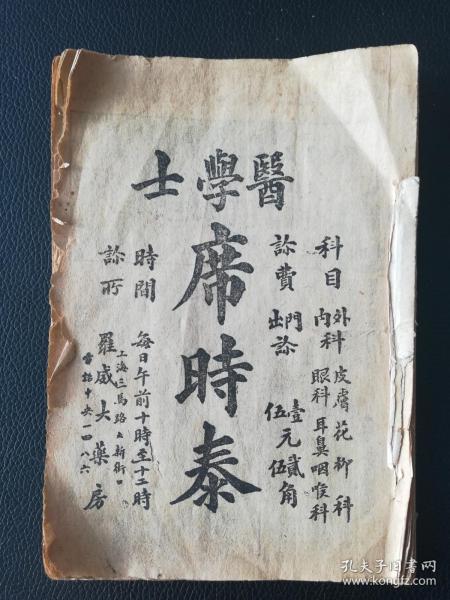 醫學士
席時泰
科目 外科 皮膚花柳科
內科 眼科 耳鼻咽喉科
診費 門診 壹元貳角
出診 伍元伍
時間 每日午前十時至十二時
診所 上海三馬路
羅威大藥房
電話中央一四八六
孔夫子旧书网
www.kongfz.com